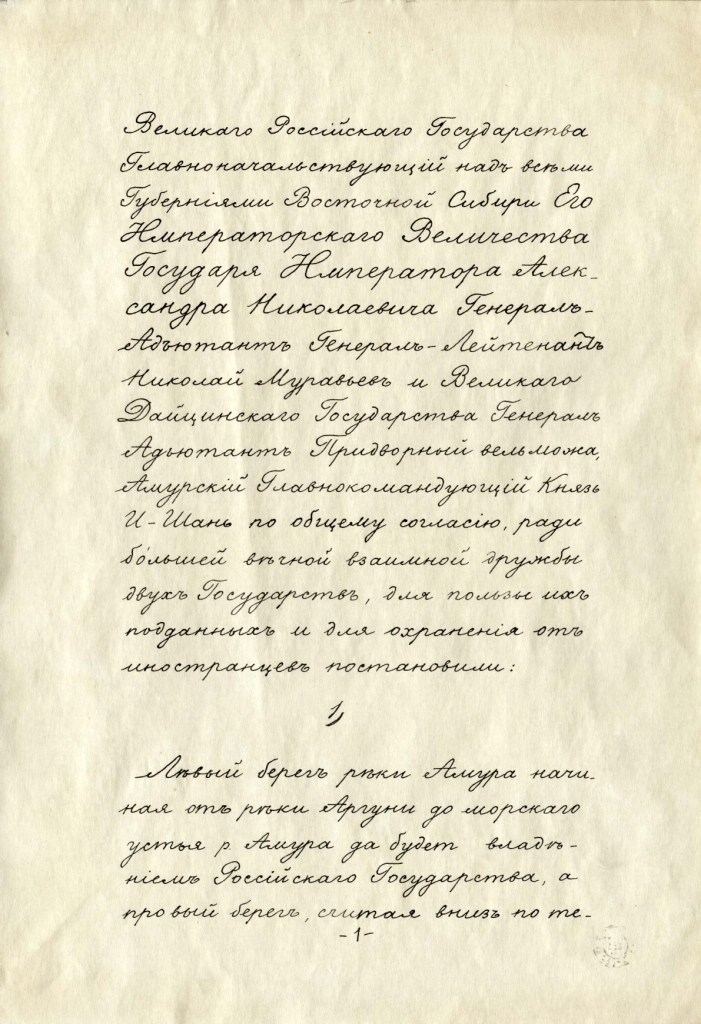 Великаго Россійскаго Государства
Главноначальствующій надъ всѣми
Губерніями Восточной Сибири Его
Императорскаго Величества
Государя Императора Алек-
сандра Николаевича Генералъ-
Адъютантъ Генералъ-Лейтенантъ
Николай Муравьевъ и Великаго
Дайцинскаго Государства Генералъ
Адьютантъ Придворный вельможа,
Амурскій Главнокомандующій Князь
И-Шань по общему согласію, ради
бóльшей вѣчной взаимной дружбы
двухъ Государствъ, для пользы ихъ
подданныхъ и для охраненія отъ
иностранцевъ постановили:
1)
Лѣвый берегъ рѣки Амура начи-
ная отъ рѣки Аргуни до морскаго
устья р. Амура да будет владѣ-
ніемъ Россійскаго Государства, а
провый берегъ, считая внизъ по те-
-1-